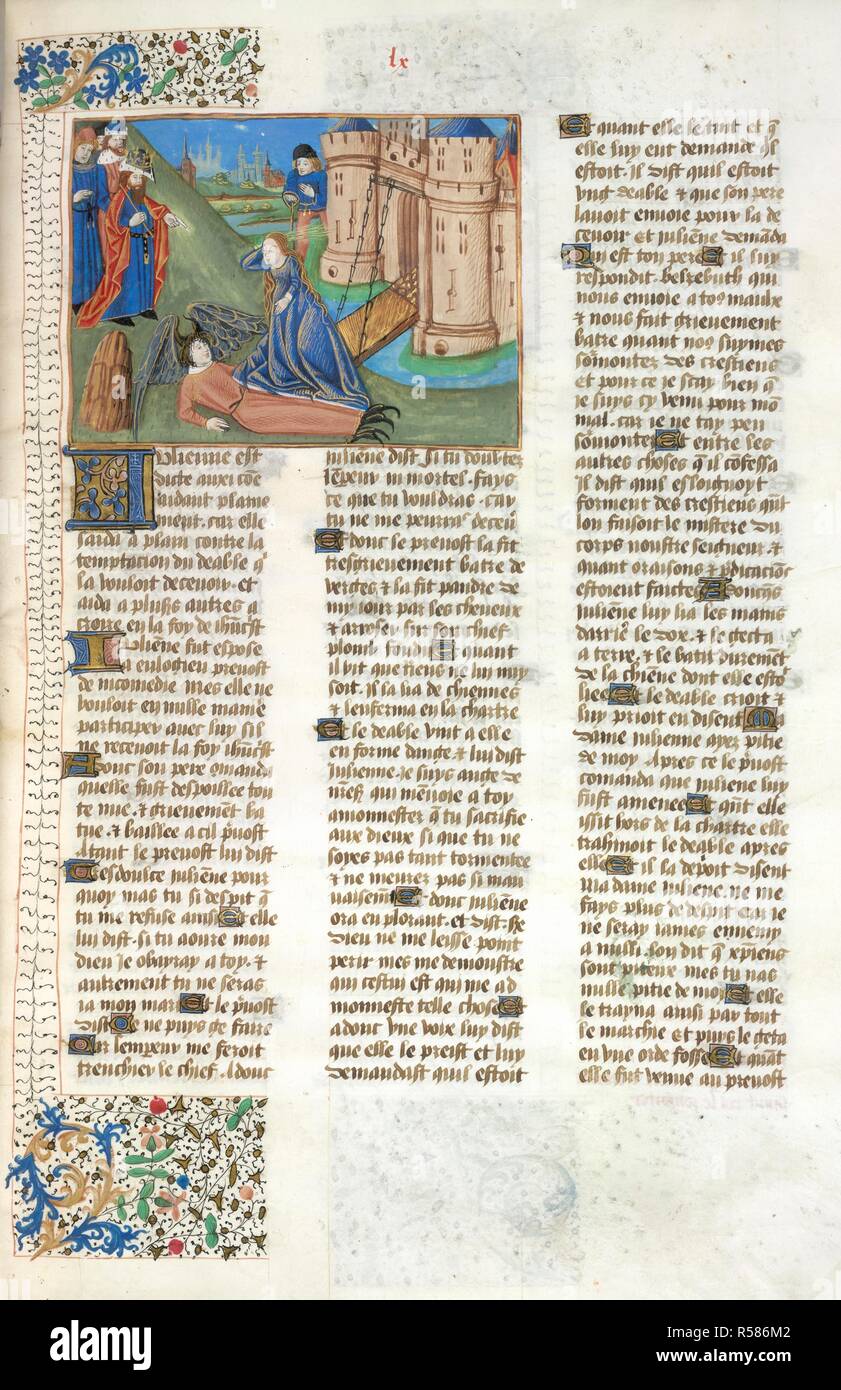 lx
Iulienne est
dicte auxi côe
ardant plaine
ment. car elle
sarda a plain contre la
temptacion du deable qͥ
la vouloit decevoir. et
aida a plusͬs autres a
croire en la foy de ihucͥst
Iuliēne fut espose
a enlogieu prevost
de nicomedie mes elle ne
vouloit en nulle manie
participer avec luy sil
ne recevoit la foy ihucͥst
Adonc son pere omanda
quelle fust despoillee tou
te nue. & griefment ba
tue. & baillee a cil pͮost
Atant le prevost lui dist
Tresdoulce iuliēne pour
quoy mas tu si despit qͤ
tu me refuse ainsi Et elle
lui dist. si tu aoure mon
dieu Je obayray a toy. &
autrement tu ne seras
ia mon mar Et le pͮost
dist Je ne puys ce faire
Car lempeur me feroit
trenchier le chief. Adonc
iuliēne dist. Si tu doubtes
lēpeur in mortel. fays
ce que tu vouldras. car
tu ne me pourras decevͥ
Et donc le prevost la fit
tresgrievement batre de
verges & la fit pandre de
my iour par les cheveux
& arroser sur son chief
plomb fondu Et quant
il vit que riens ne lui nuy
soit. il la lia de chiennes
& lenferma en la chartre
Et le deable vint a elle
en forme dange. & lui dist
Iulienne. Je suys ange de
nrē sͬ qui menvoie a toy
amonnester qͤ tu sacrifie
aux dieux si que tu ne
soyes pas tant tormentee
& ne meures pas si mau
vaisemt̄ Et donc iuliēne
ora en plorant. et dist. Sire
Dieu ne me lesse point
perir mes me demonstre
qui cestui est qui me ad
monneste telle chose Et
adonc une voix luy dist
que elle le preist et luy
demandast quil estoit
Et quant elle le tint et qͤ
elle luy eut demande qͥl
estoit. Il dist quil estoit
ung deable & que son pere
lavoit envoie pour la de
cevoir Et iuliēne demāda
Qui est ton pere Et il luy
respondit. belzebuth qui
nous envoie a toꝰ maulx
& nous fait grievement
batre quant noꝰ suymes
sōmontez des crestiens
Et pour ce ie scay bien qͤ
ie suys cy venu pour mon
mal. car ie ne tay peu
sōmonter Et entre les
autres choses qͤ il confessa
il dist quil esloignoyt
forment des crestiens qn̄t
lon faisoit le mistere du
corps nostre seigneur. &
quant oraisons & pdicaciōs
estoient faictes Adoncqͤs
iuliēne luy lia les mains
darriͤ le dox. & le gecta
a terre. & le batit duremēt
de la chiēne dont elle esto
liee Et le deable crioit &
luy prioit en disent Ma
dame iulienne ayez pitie
de moy. Apres ce le pͮost
comanda que iuliēne luy
fust amenee Et qn̄t elle
issit hors de la chartre elle
trahinoit le deable apres
elle Et il la depͥoit disent
Ma dame iuliēne. ne me
fays plus de despit car ie
ne seray iames ennemy
a nulli. Lon dit qͤ xpͥens
sont piteux mes tu nas
nulle pitie de moy Et elle
le trayna ainsi par tout
le marchie Et puys le geta
en une orde fosse Et quāt
elle fut venue au prevost
alamy
Image ID: R586M2
www.alamy.com